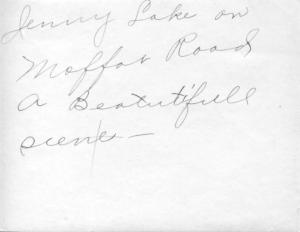 Jenny Lake on
Moffat Road
A Beatutifull
scene—